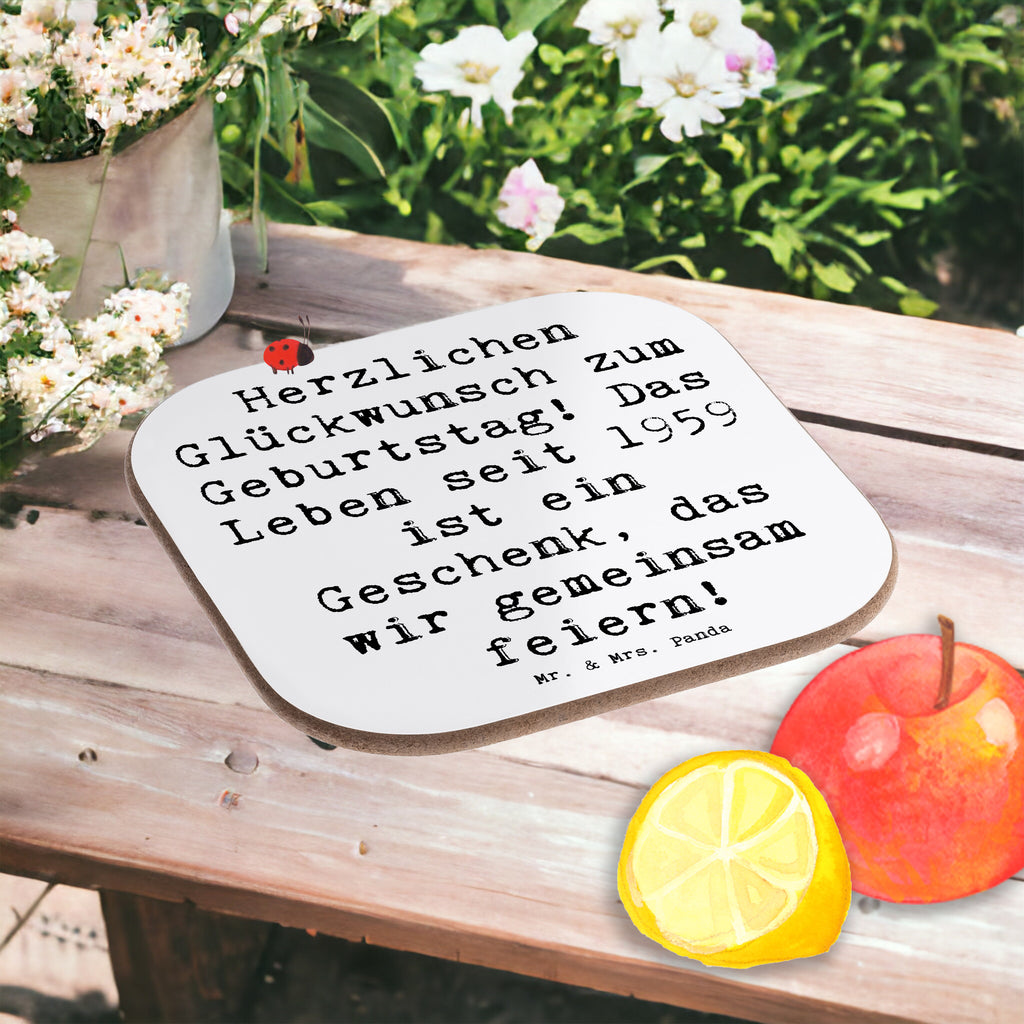 Herzlichen
Glückwunsch zum
Geburtstag! Das
Leben seit 1959
ist ein
Geschenk, das
wir gemeinsam
feiern!
Mr. & Mrs. Panda